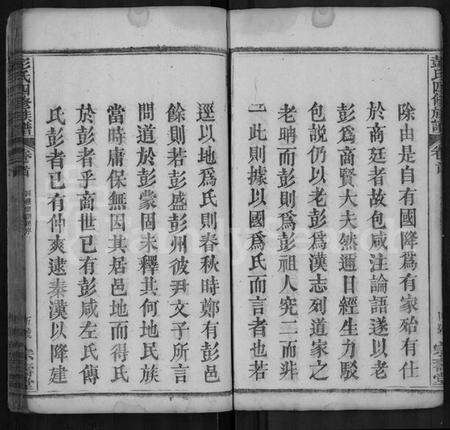 除由是自有國降爲有家殆有仕
於商廷者故包咸注論語遂以老
彭爲商賢大夫然邇日經生力駁
包說仍以老彭爲漢志列道家之
老聃而彭則爲彭祖人究二而非
一此則據以國爲氏而言者也若
逕以地爲氏則春秋時鄭有彭邑
餘則若彭盛彭州彼尹文子所言
問道於彭蒙固未釋其何地民族
當時庸保無因其居邑地而得氏
於彭者乎商世已有彭咸左氏傳
氏彭者已有仲爽逮秦漢以降建
彭氏四修族譜
卷首